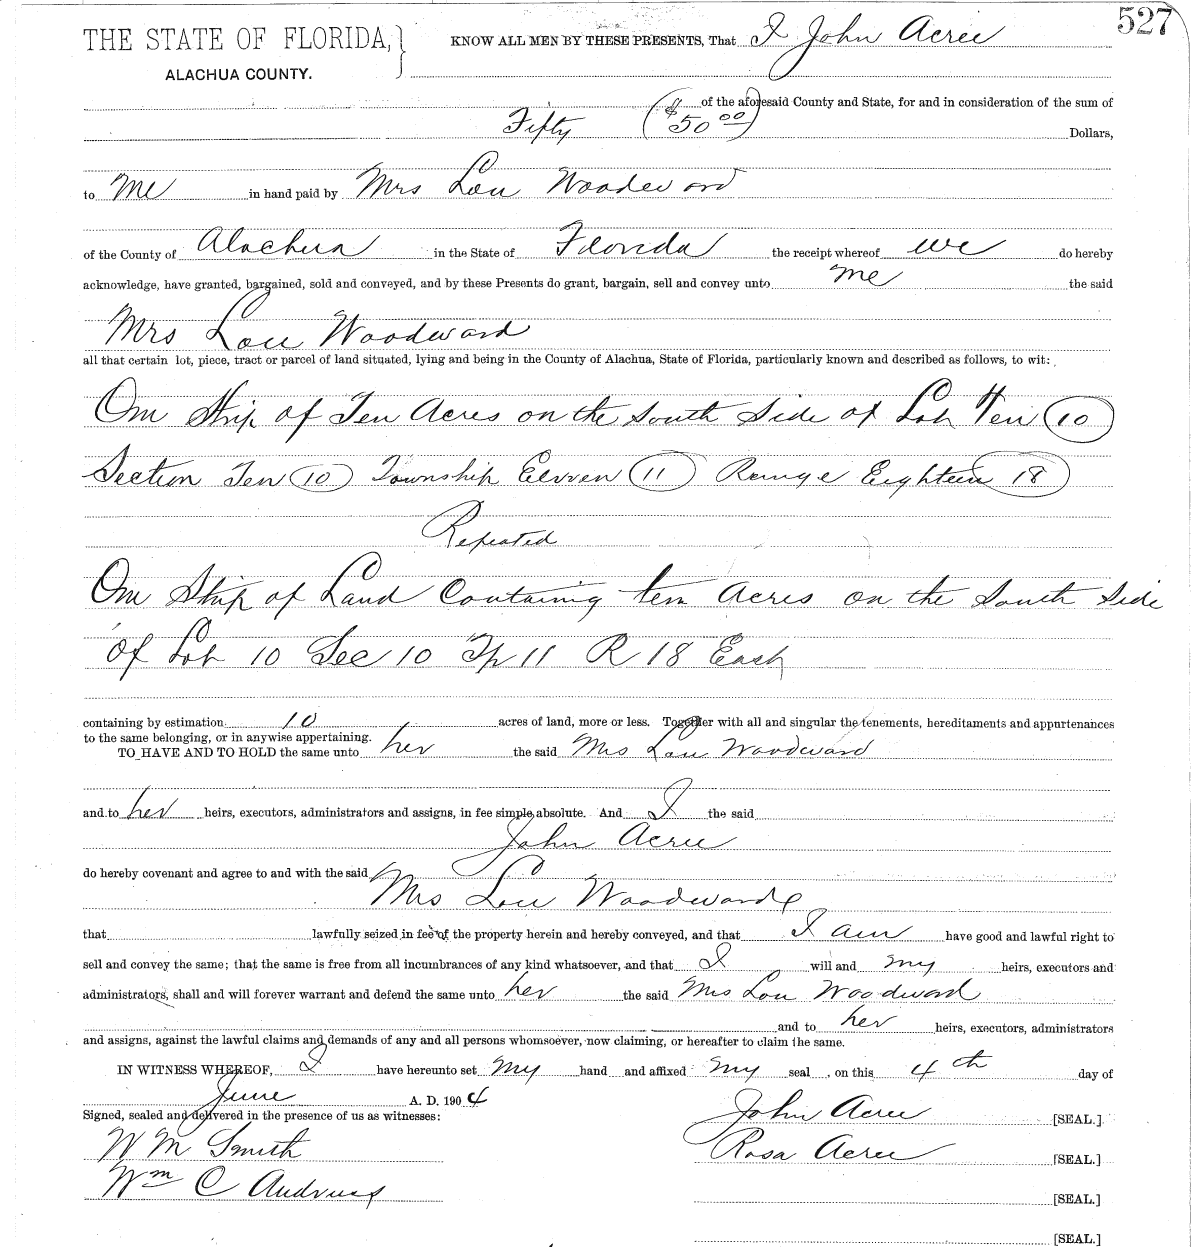 527
THE STATE OF FLORIDA, } KNOW ALL MEN BY THESE PRESENTS, That I John Acree
ALACHUA COUNTY.
of the aforesaid County and State, for and in consideration of the sum of
Fifty ($50 00) Dollars,
to me in hand paid by Mrs Lou Woodward
of the County of Alachua in the State of Florida the receipt whereof we do hereby
acknowledge, have granted, bargained, sold and conveyed, and by these Presents do grant, bargain, sell and convey unto me the said
Mrs Lou Woodward
all that certain lot, piece, tract or parcel of land situated, lying and being in the County of Alachua, State of Florida, particularly known and described as follows, to wit:
On Strip of Ten Acres on the South Side of Lot Ten 10
Section Ten 10 Township Eleven 11 Range Eighteen 18
Repeated
On Strip of Land Containing ten Acres on the South Side
of Lot 10 Sec 10 Tp 11 R 18 East
containing by estimation 10 acres of land, more or less. Together with all and singular the tenements, hereditaments and appurtenances
to the same belonging, or in anywise appertaining.
TO HAVE AND TO HOLD the same unto her the said Mrs Lou Woodward
and to her heirs, executors, administrators and assigns, in fee simple absolute. And I the said
John Acree
do hereby covenant and agree to and with the said Mrs Lou Woodward
that lawfully seized in fee of the property herein and hereby conveyed, and that I am have good and lawful right to
sell and convey the same; that the same is free from all incumbrances of any kind whatsoever, and that I will and my heirs, executors and
administrators, shall and will forever warrant and defend the same unto her the said Mrs Lou Woodward
and to her heirs, executors, administrators
and assigns, against the lawful claims and demands of any and all persons whomsoever, now claiming, or hereafter to claim the same.
IN WITNESS WHEREOF, I have hereunto set my hand and affixed my seal , on this 4th day of
June A. D. 1904
Signed, sealed and delivered in the presence of us as witnesses: John Acree [SEAL.]
W M Smith Rosa Acree [SEAL.]
Wm C Andrews [SEAL.]
[SEAL.]